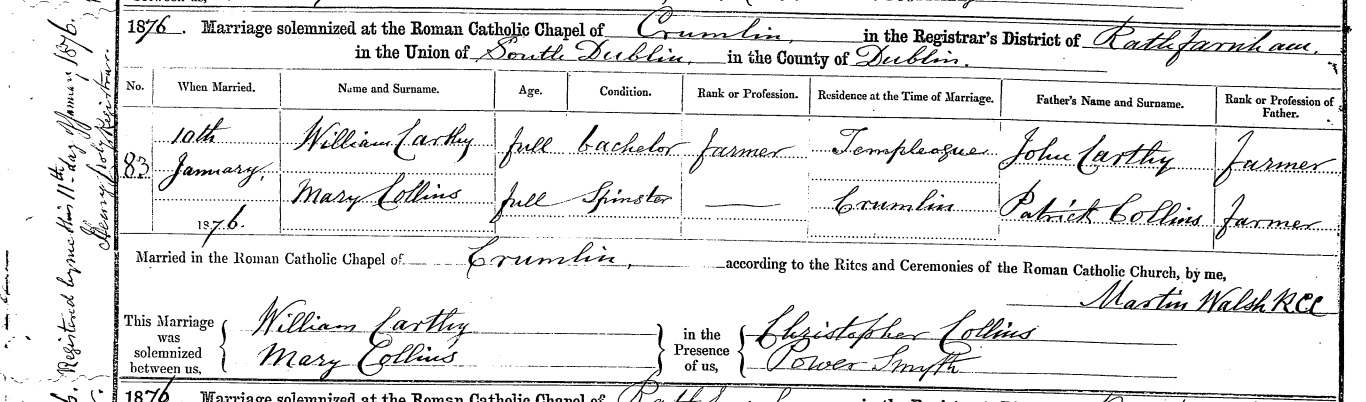 1876. Marriage solemnized at the Roman Catholic Chapel of Crumlin, in the Registrar's District of Rathfarnham,
in the Union of South Dublin, in the County of Dublin.
No. When Married. Name and Surname. Age. Condition. Rank or Profession. Residence at the Time of Marriage. Father's Name and Surname. Rank or Profession of Father.
83 10th January, 1876. William Carthy full bachelor farmer Templeogue John Carthy farmer
Mary Collins full Spinster — Crumlin Patrick Collins farmer
Married in the Roman Catholic Chapel of Crumlin, according to the Rites and Ceremonies of the Roman Catholic Church, by me,
Martin Walsh RCC
This Marriage was solemnized between us,
William Carthy
Mary Collins
in the Presence of us,
Christopher Collins
Power Smyth
Registered by me this 11th day of January 1876.
Henry Registrar.
1876 Marriage solemnized at the Roman Catholic Chapel of